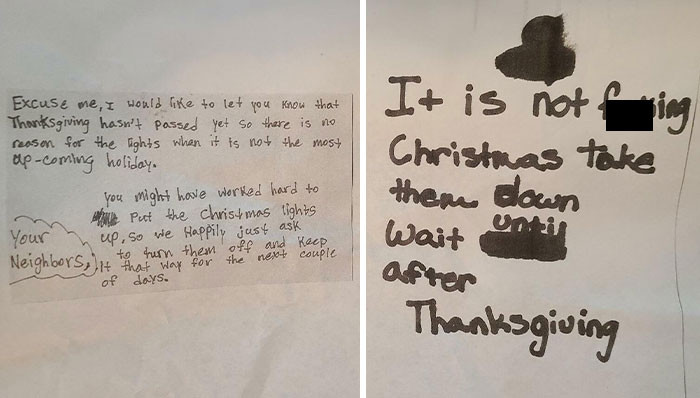 Excuse me, I would like to let you know that
Thanksgiving hasn't passed yet so there is no
reason for the lights when it is not the most
up-coming holiday.
you might have worked hard to
put the Christmas lights
up, so we Happily just ask
to turn them off and keep
it that way for the next couple
of days.
Your
Neighbors,
It is not f ing
Christmas take
them down
Wait until
after
Thanksgiving